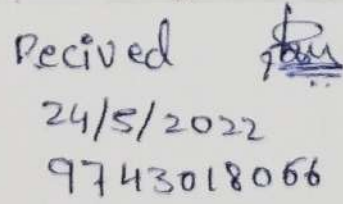 Recived
24/5/2022
9743018066